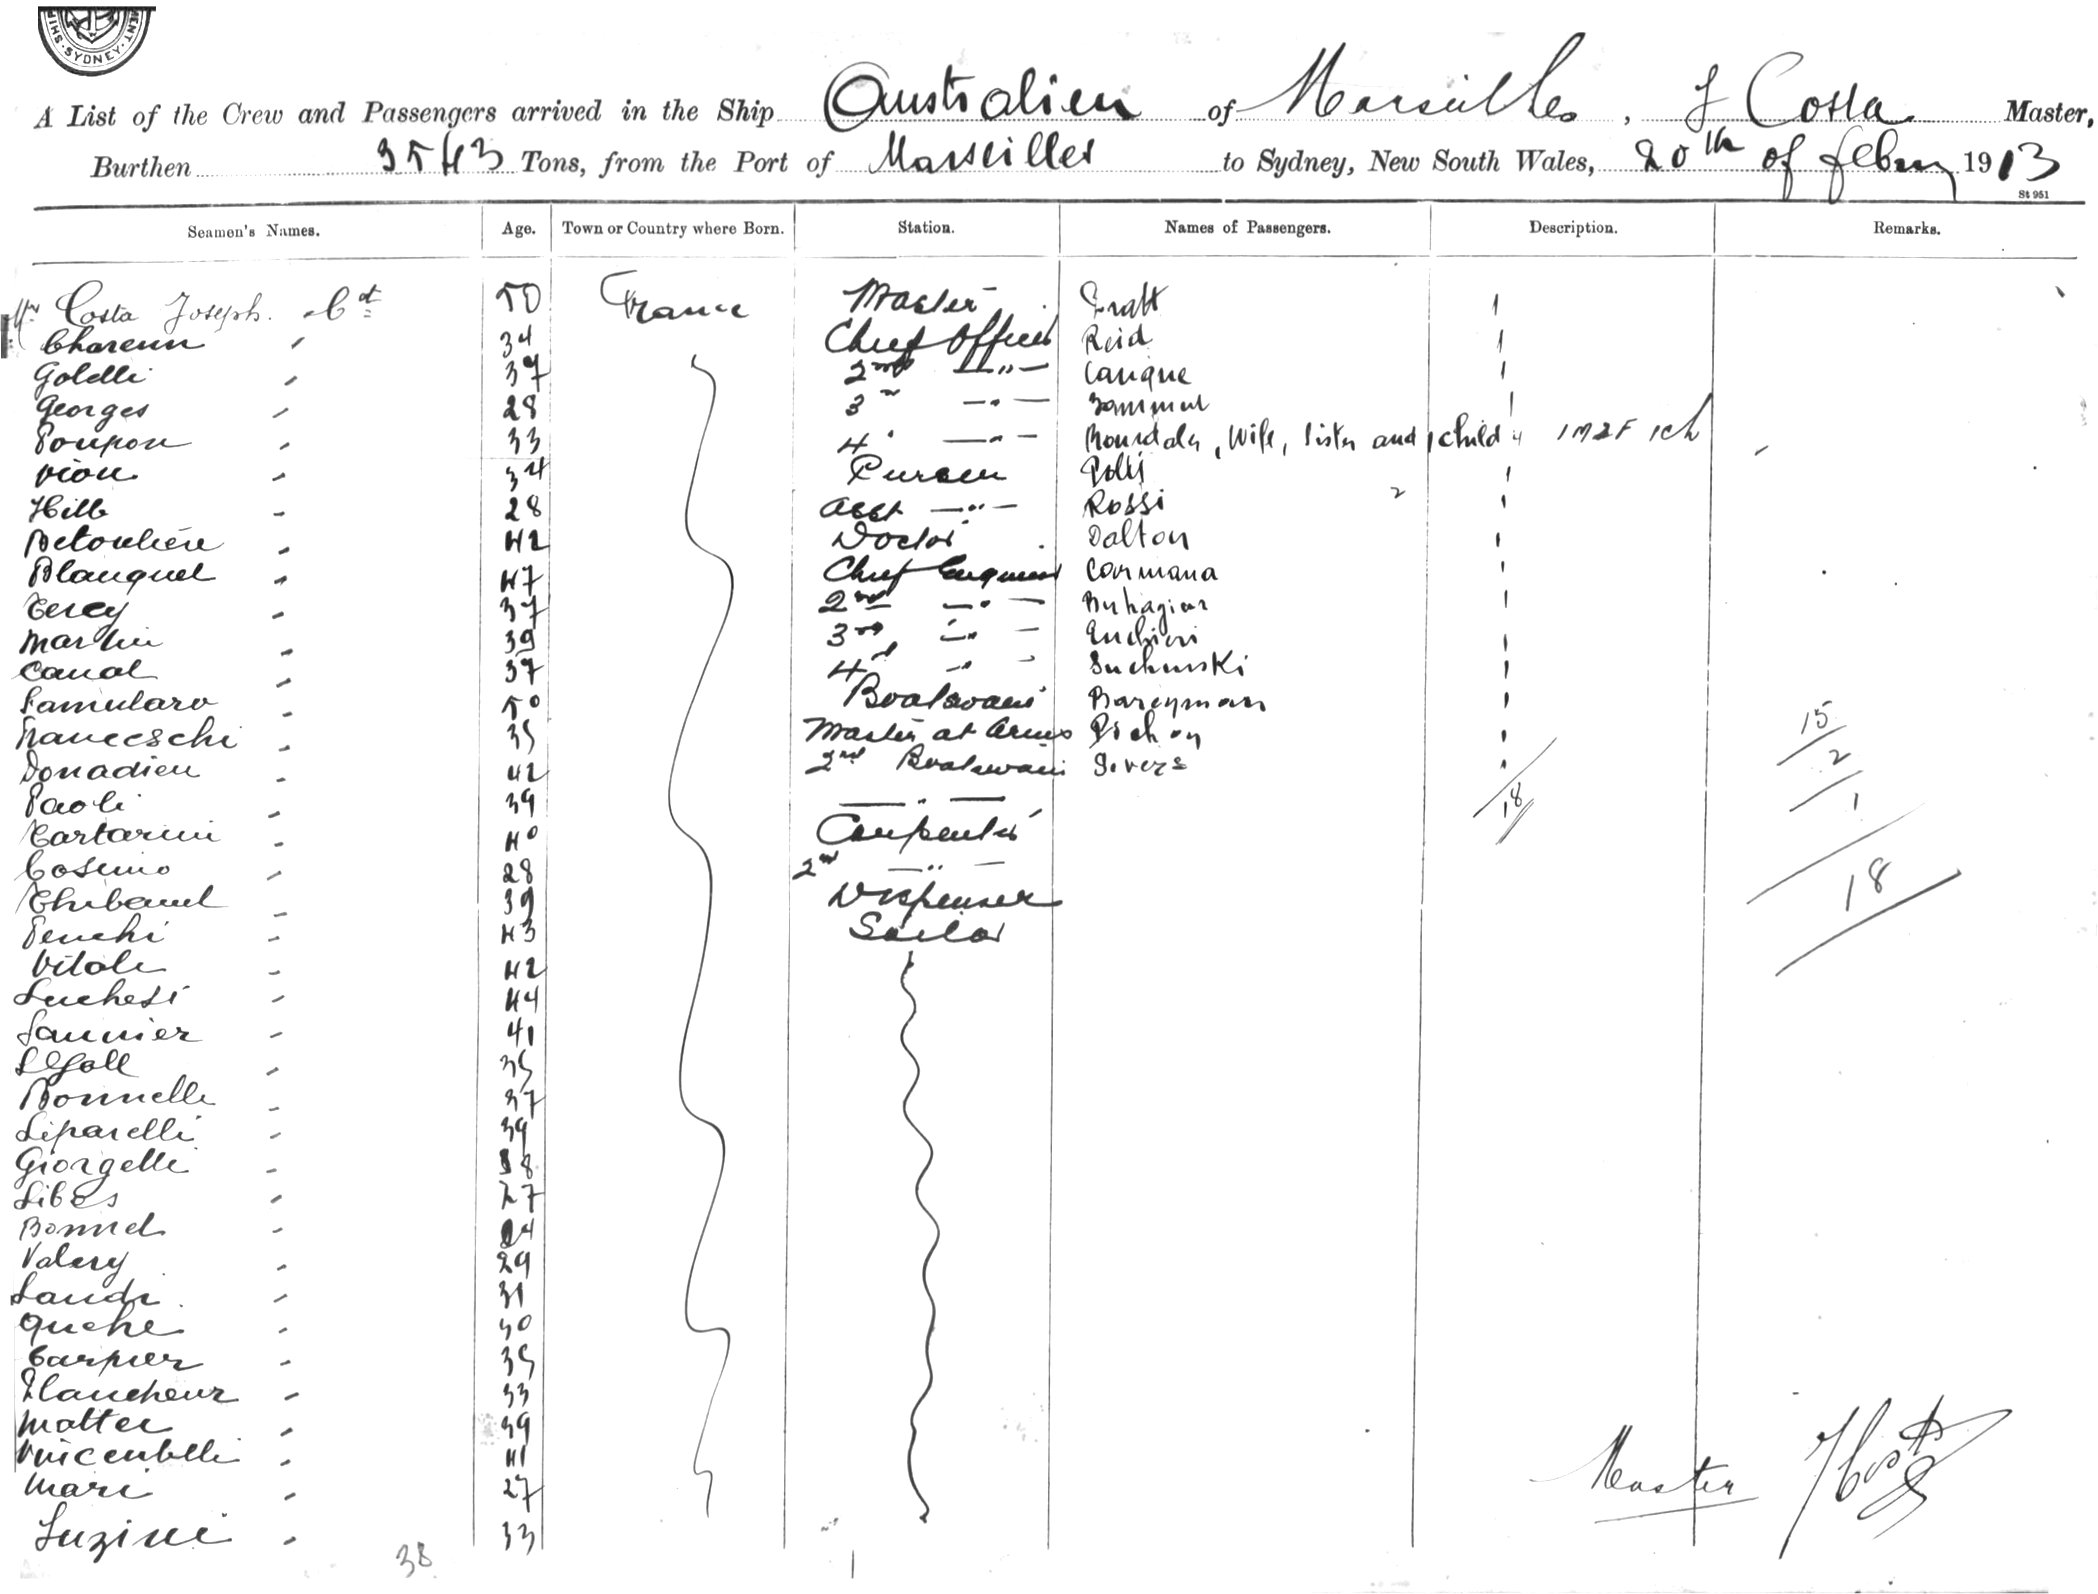 SYDNEY
A List of the Crew and Passengers arrived in the Ship Australien of Marseilles, J Costa Master,
Burthen 3543 Tons, from the Port of Marseilles to Sydney, New South Wales, 20th of 1913
St 951
Seamen's Names. Age. Town or Country where Born. Station. Names of Passengers. Description. Remarks.
Costa Joseph. 50 France Master 1
34 Chief Officer Reid 1
37 2nd —"— Canque 1
Georges " 28 3 —"— Sammut 1
Poupon " 33 4 —"— wife, sister and 1 child 4 1M 2F 1ch
Vion " 34 Purser 1
" 28 Asst —"— Rossi 2 1
" 42 Doctor Dalton 1
Blanquet " 47 Chief Engineer Carmana 1
Tercy " 37 2nd —"— Buhagiar 1
Martin " 39 3rd —"— 1
Canal " 37 4 " - Suchenski 1
Famularo " 50 Boatswain 1
Franceschi " 35 Master at Arms Pichon 1 15
Donadieu " 42 2nd Boatswain 1 2
Paoli " 39 —"— 18 1
Tartarini " 40 Carpenter
Cosimo " 28 2nd —"— 18
Thibaud " 39 Dispenser
" 43 Sailor
Vitali " 42
Luchesi " 44
Saunier " 41
LeGall " 35
Bonnelli " 37
Liparelli " 39
Giorgelli " 38
Libes " 27
Bonnet " 24
Valery " 29
Landi " 31
Queche " 30
Carpier " 35
Plancheur " 33
Mattei " 39
Vincentelli " 41
Mari " 27 Master
Luzini " 33
38